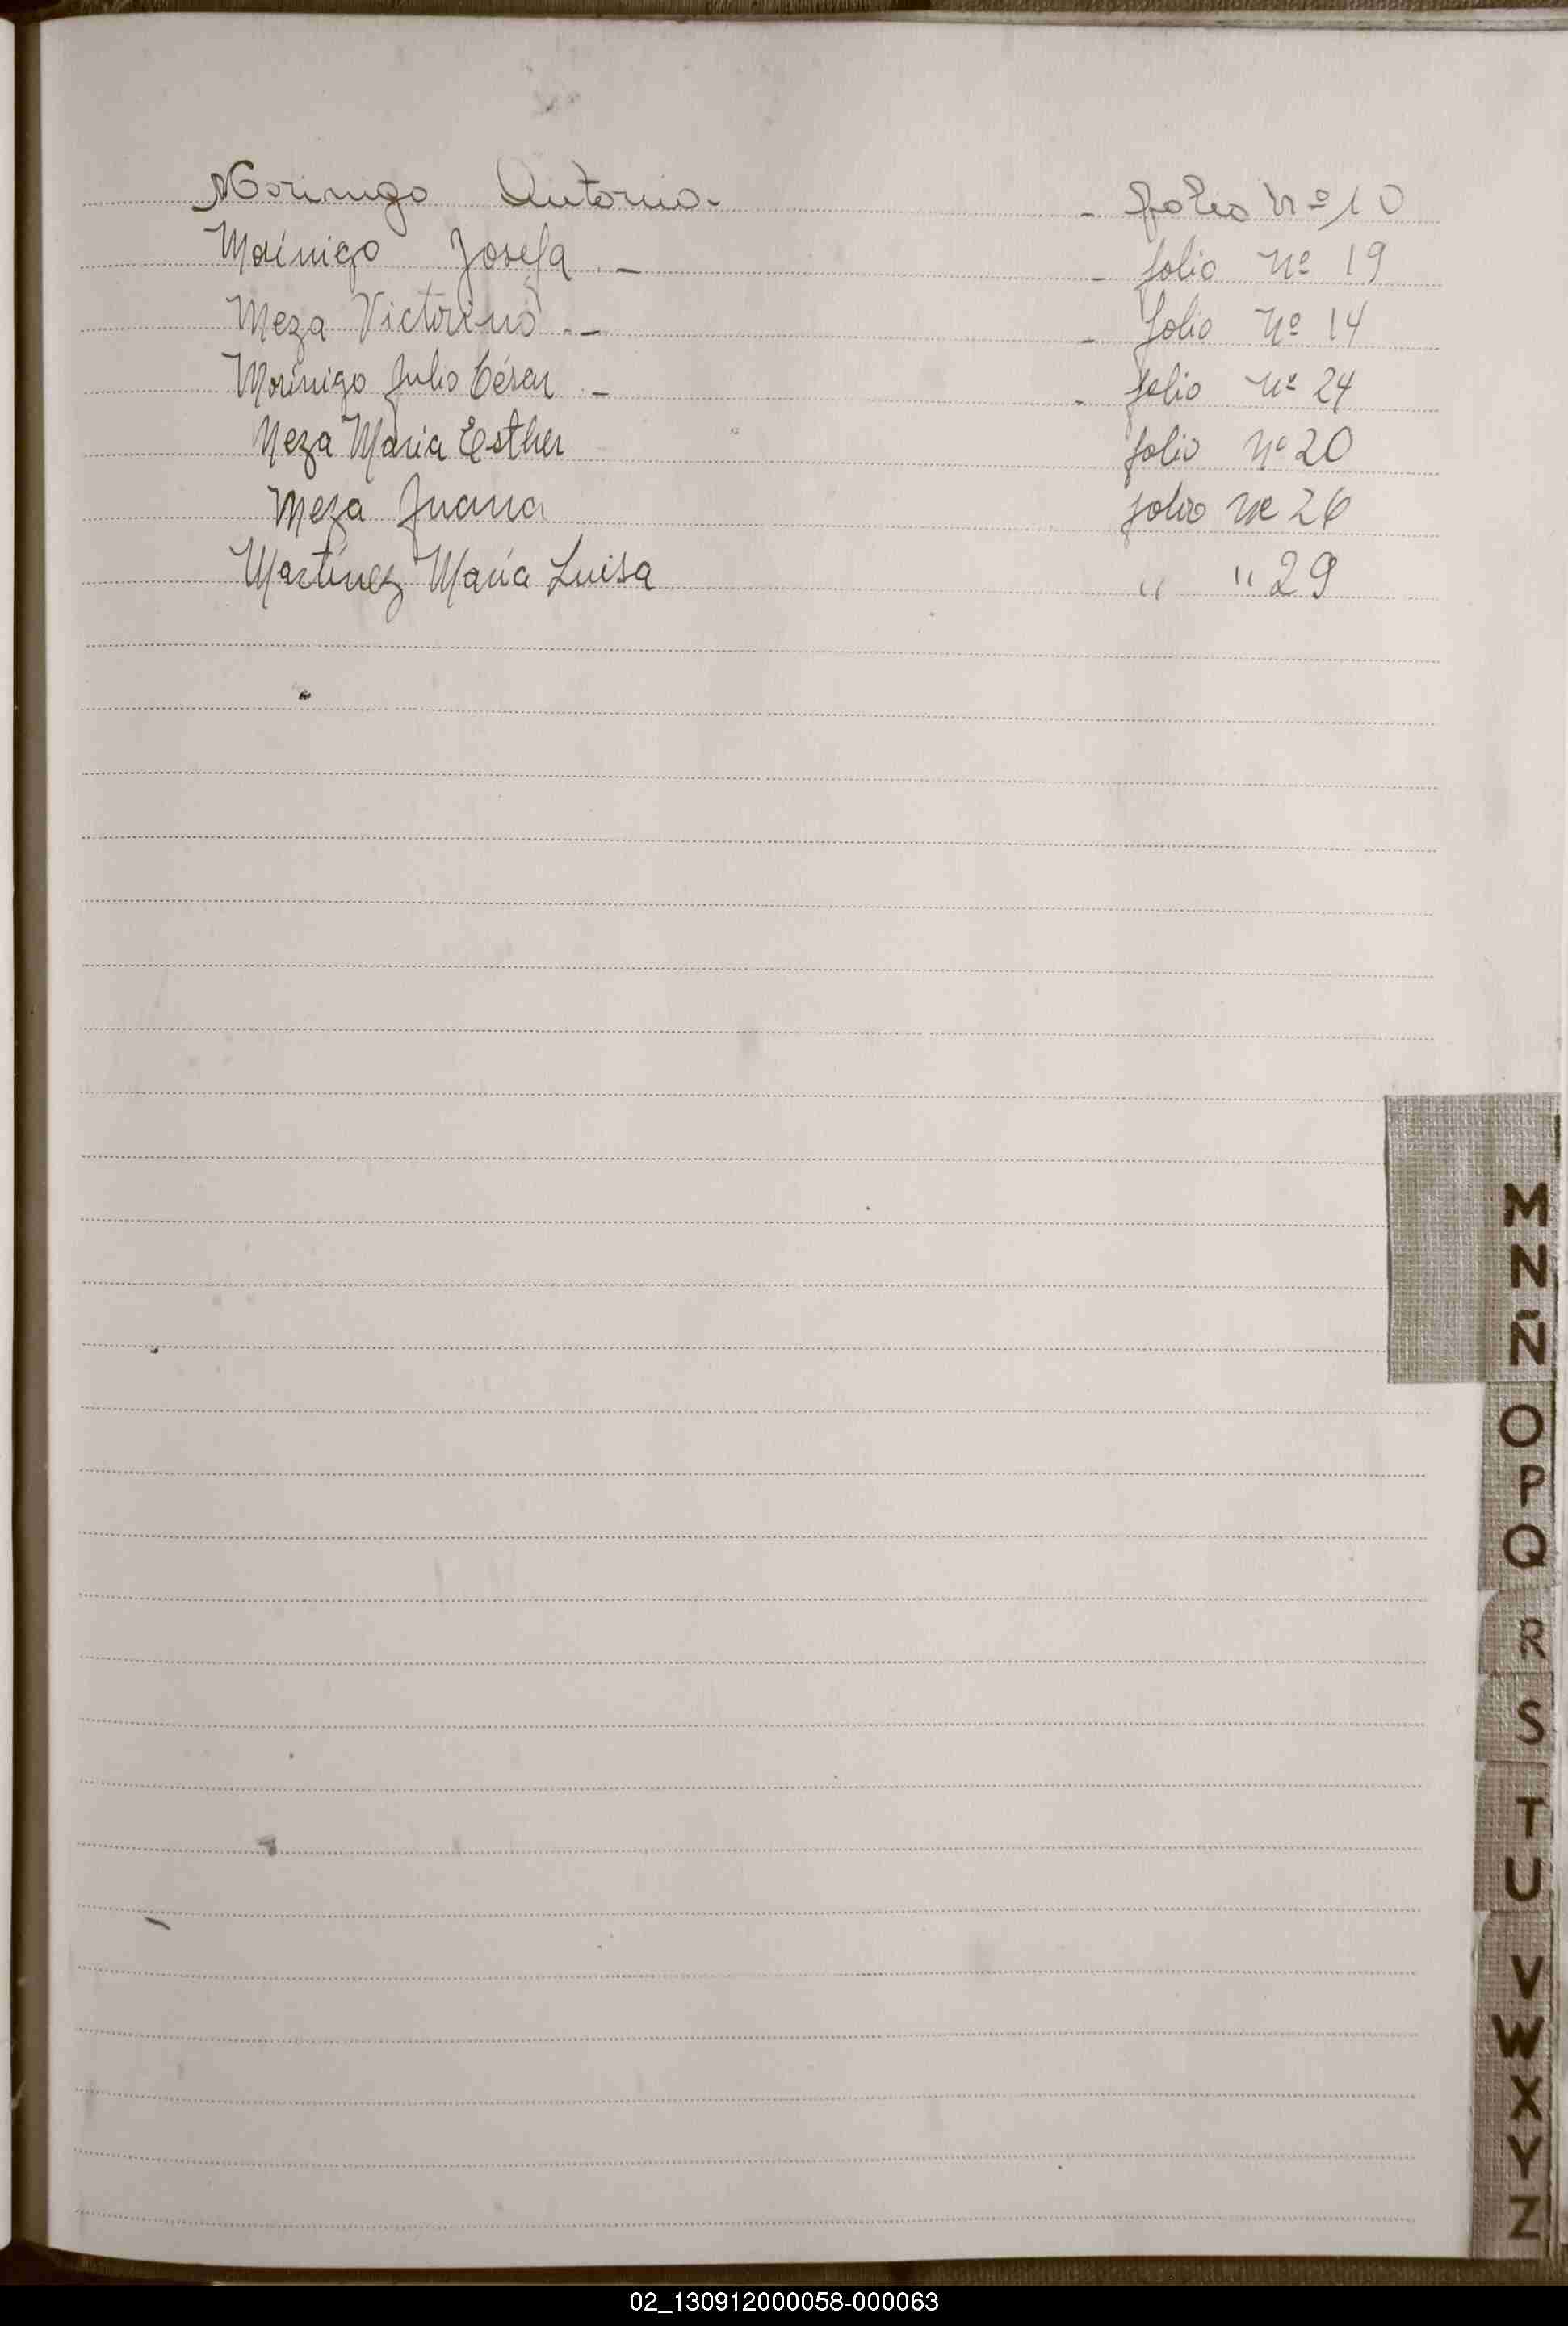 Morinigo Antonio. - folio nº 10
Moŕinigo Josefa . - - folio nº 19
Meza Victorino . - - folio nº 14
Morínigo Julio César . - - folio nº 24
Meza María Esther folio nº 20
Meza Juana folio nº 26
Martínez María Luisa " " 29
M
N
Ñ
O
P
Q
R
S
T
U
V
W
X
Y
Z
02_130912000058-000063